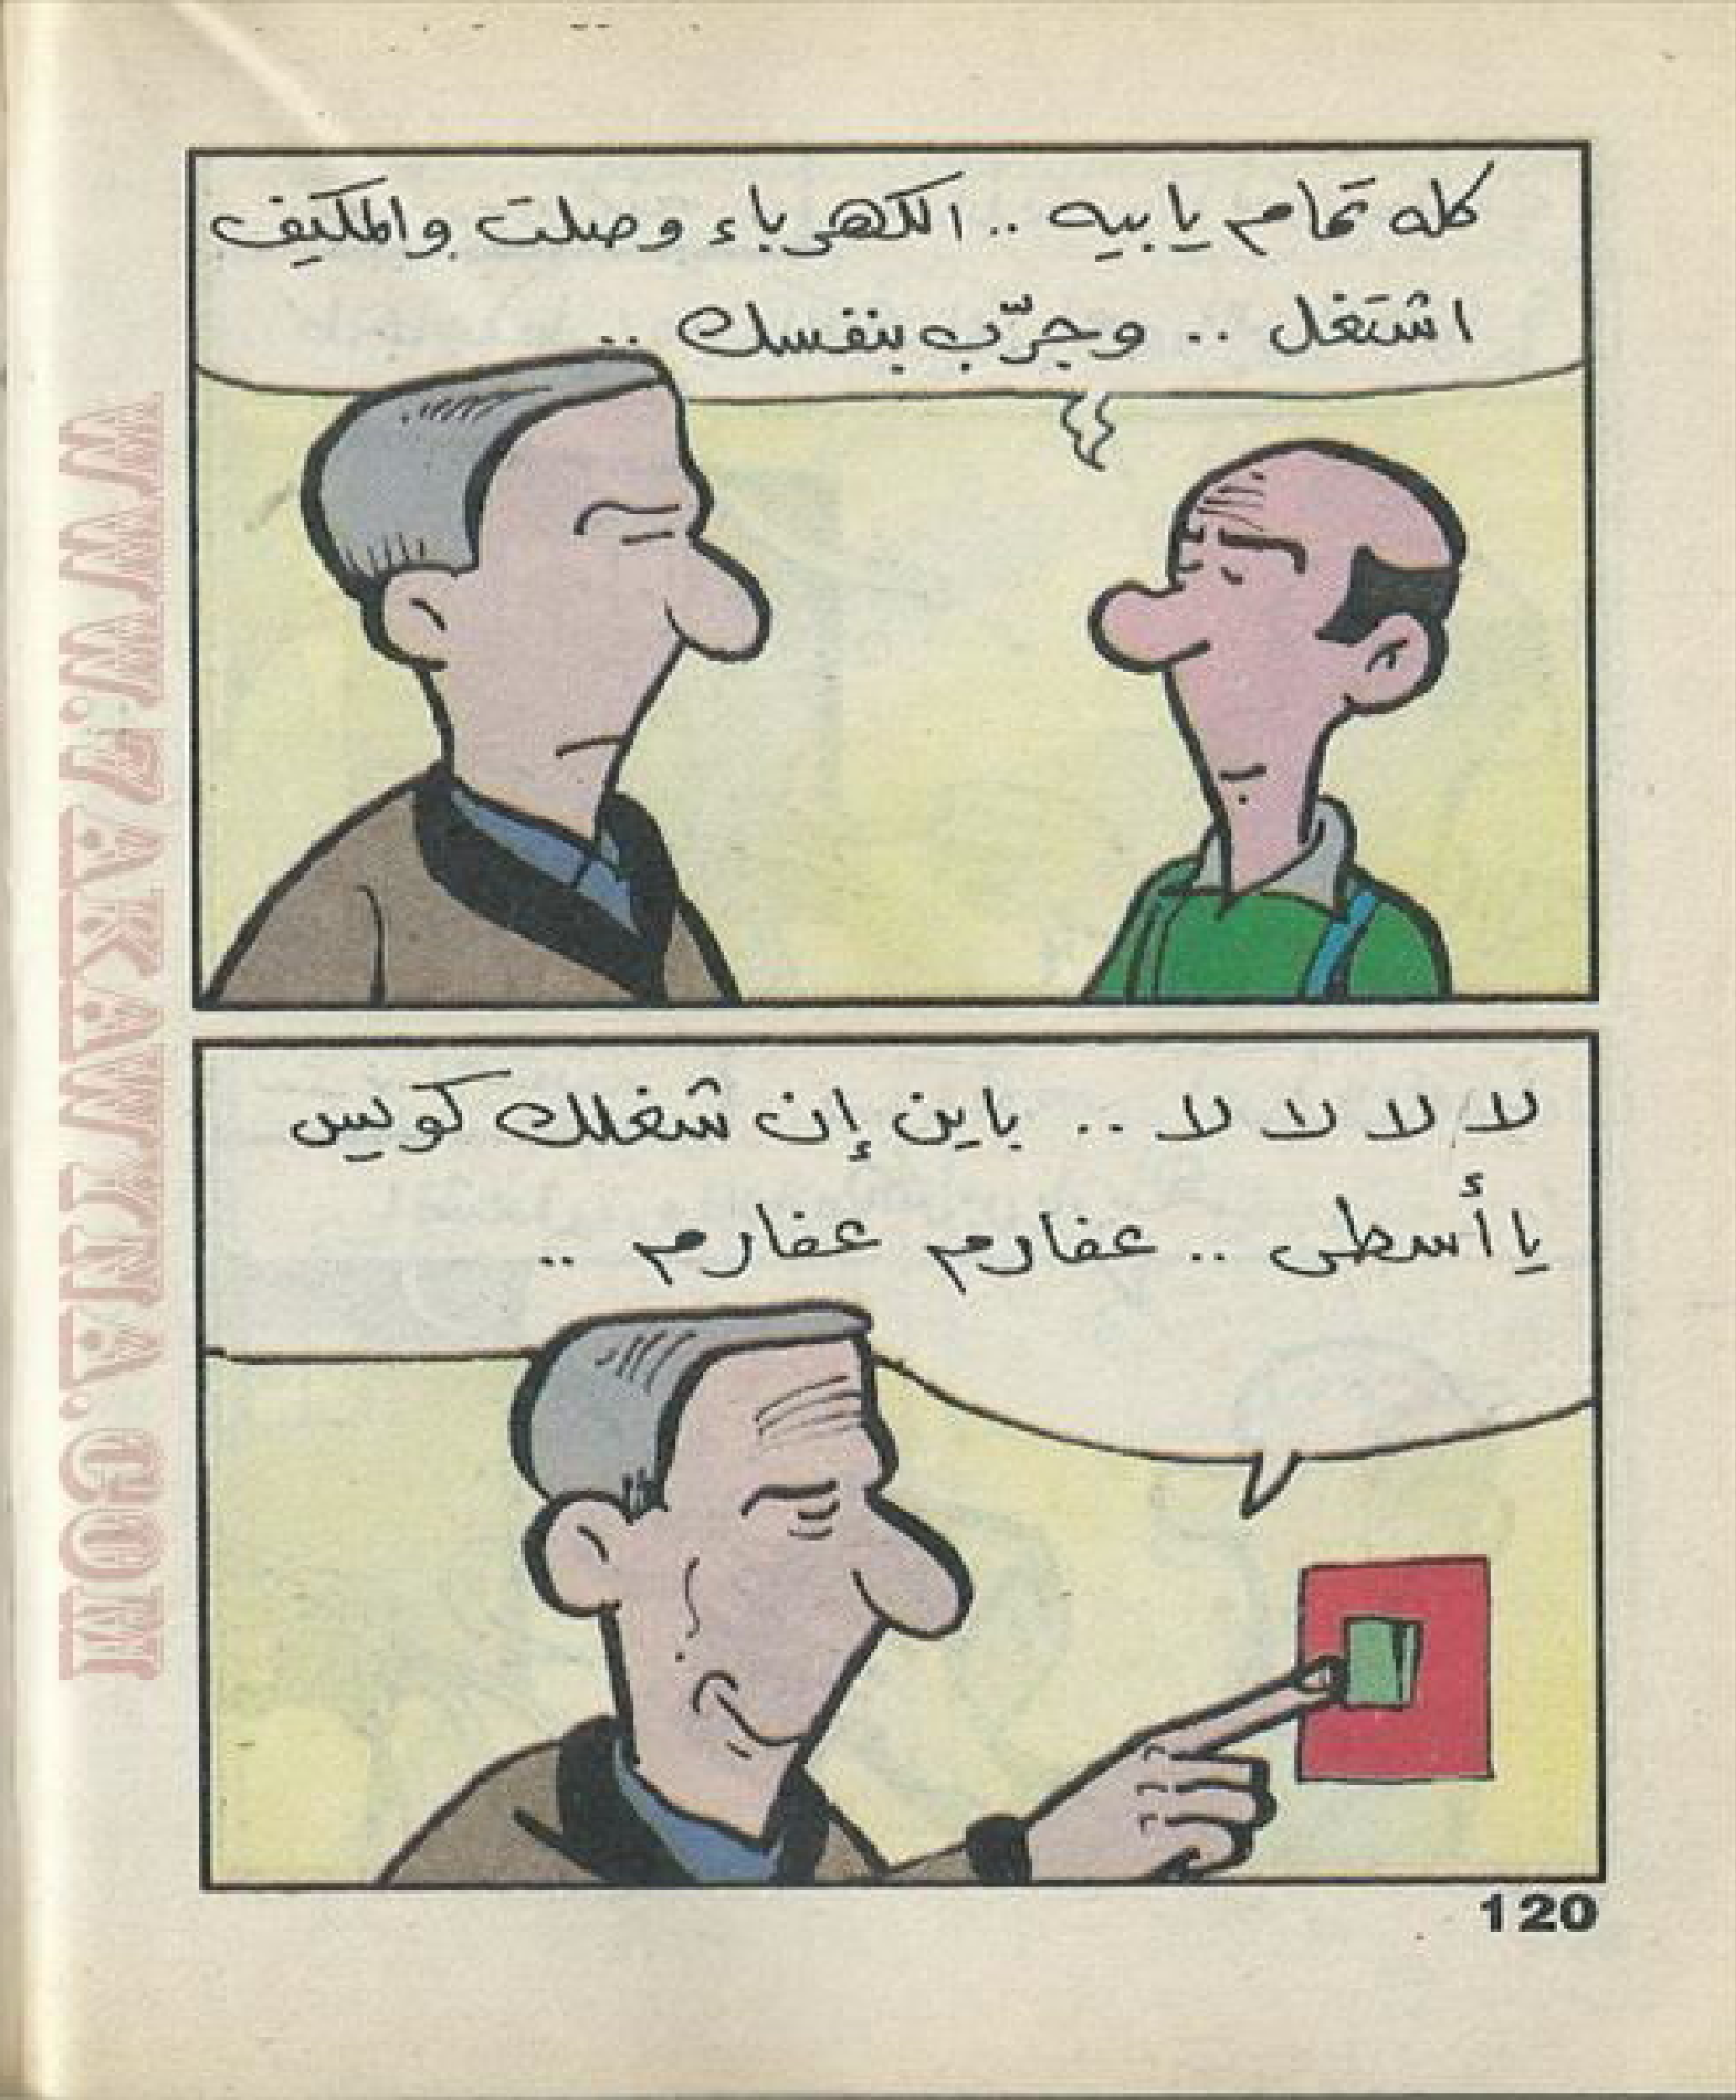 كله تمام يا بيه .. الكهرباء وصلت والمكيف
اشتغل .. وجرّب بنفسك ..
لا لا لا لا .. باين إن شغلك كويس
يا أسطى .. عفارم عفارم ..
120